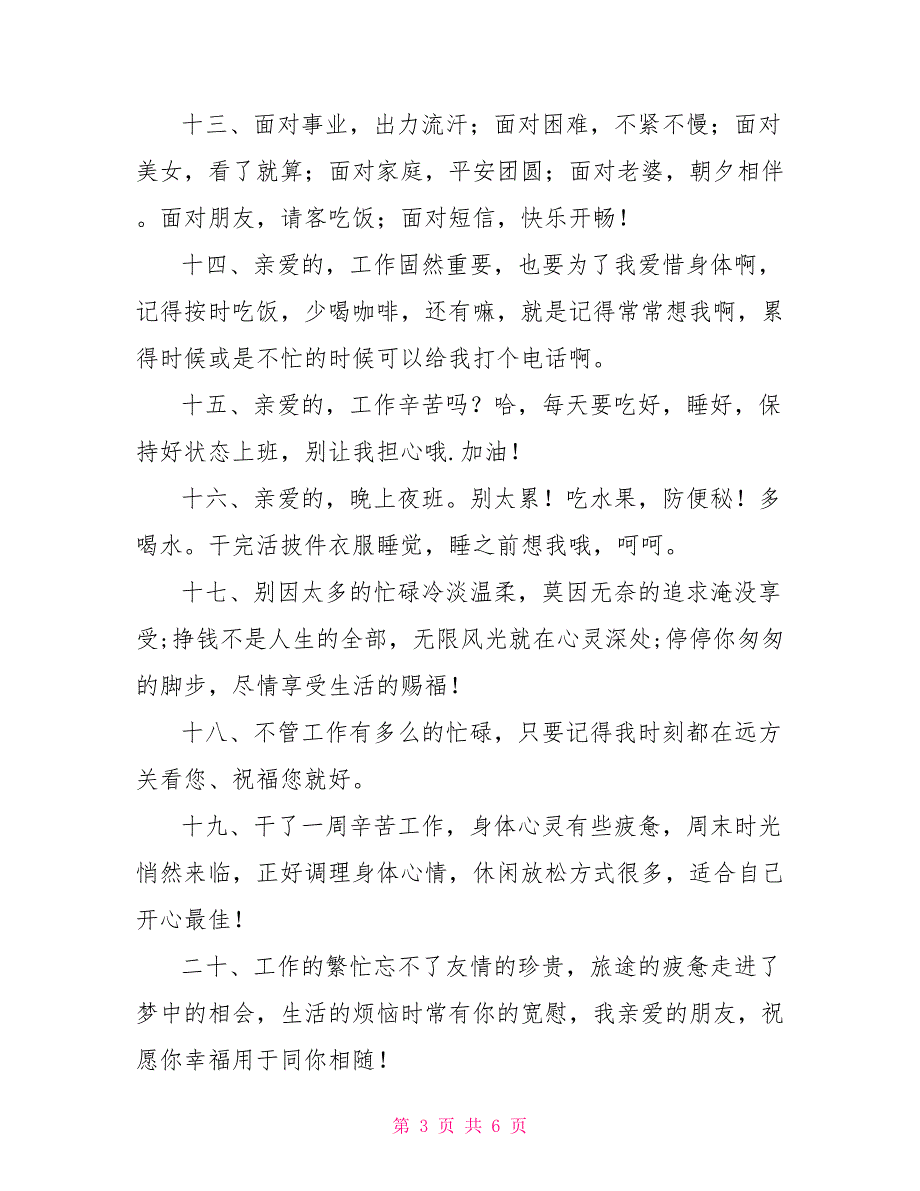 十三、面对事业，出力流汗；面对困难，不紧不慢；面对
美女，看了就算；面对家庭，平安团圆；面对老婆，朝夕相伴
。面对朋友，请客吃饭；面对短信，快乐开畅！
十四、亲爱的，工作固然重要，也要为了我爱惜身体啊，
记得按时吃饭，少喝咖啡，还有嘛，就是记得常常想我啊，累
得时候或是不忙的时候可以给我打个电话啊。
十五、亲爱的，工作辛苦吗？哈，每天要吃好，睡好，保
持好状态上班，别让我担心哦.加油！
十六、亲爱的，晚上夜班。别太累！吃水果，防便秘！多
喝水。干完活披件衣服睡觉，睡之前想我哦，呵呵。
十七、别因太多的忙碌冷淡温柔，莫因无奈的追求淹没享
受;挣钱不是人生的全部，无限风光就在心灵深处;停停你匆匆
的脚步，尽情享受生活的赐福！
十八、不管工作有多么的忙碌，只要记得我时刻都在远方
关看您、祝福您就好。
十九、干了一周辛苦工作，身体心灵有些疲惫，周末时光
悄然来临，正好调理身体心情，休闲放松方式很多，适合自己
开心最佳！
二十、工作的繁忙忘不了友情的珍贵，旅途的疲惫走进了
梦中的相会，生活的烦恼时常有你的宽慰，我亲爱的朋友，祝
愿你幸福用于同你相随！
第 3 页 共 6 页